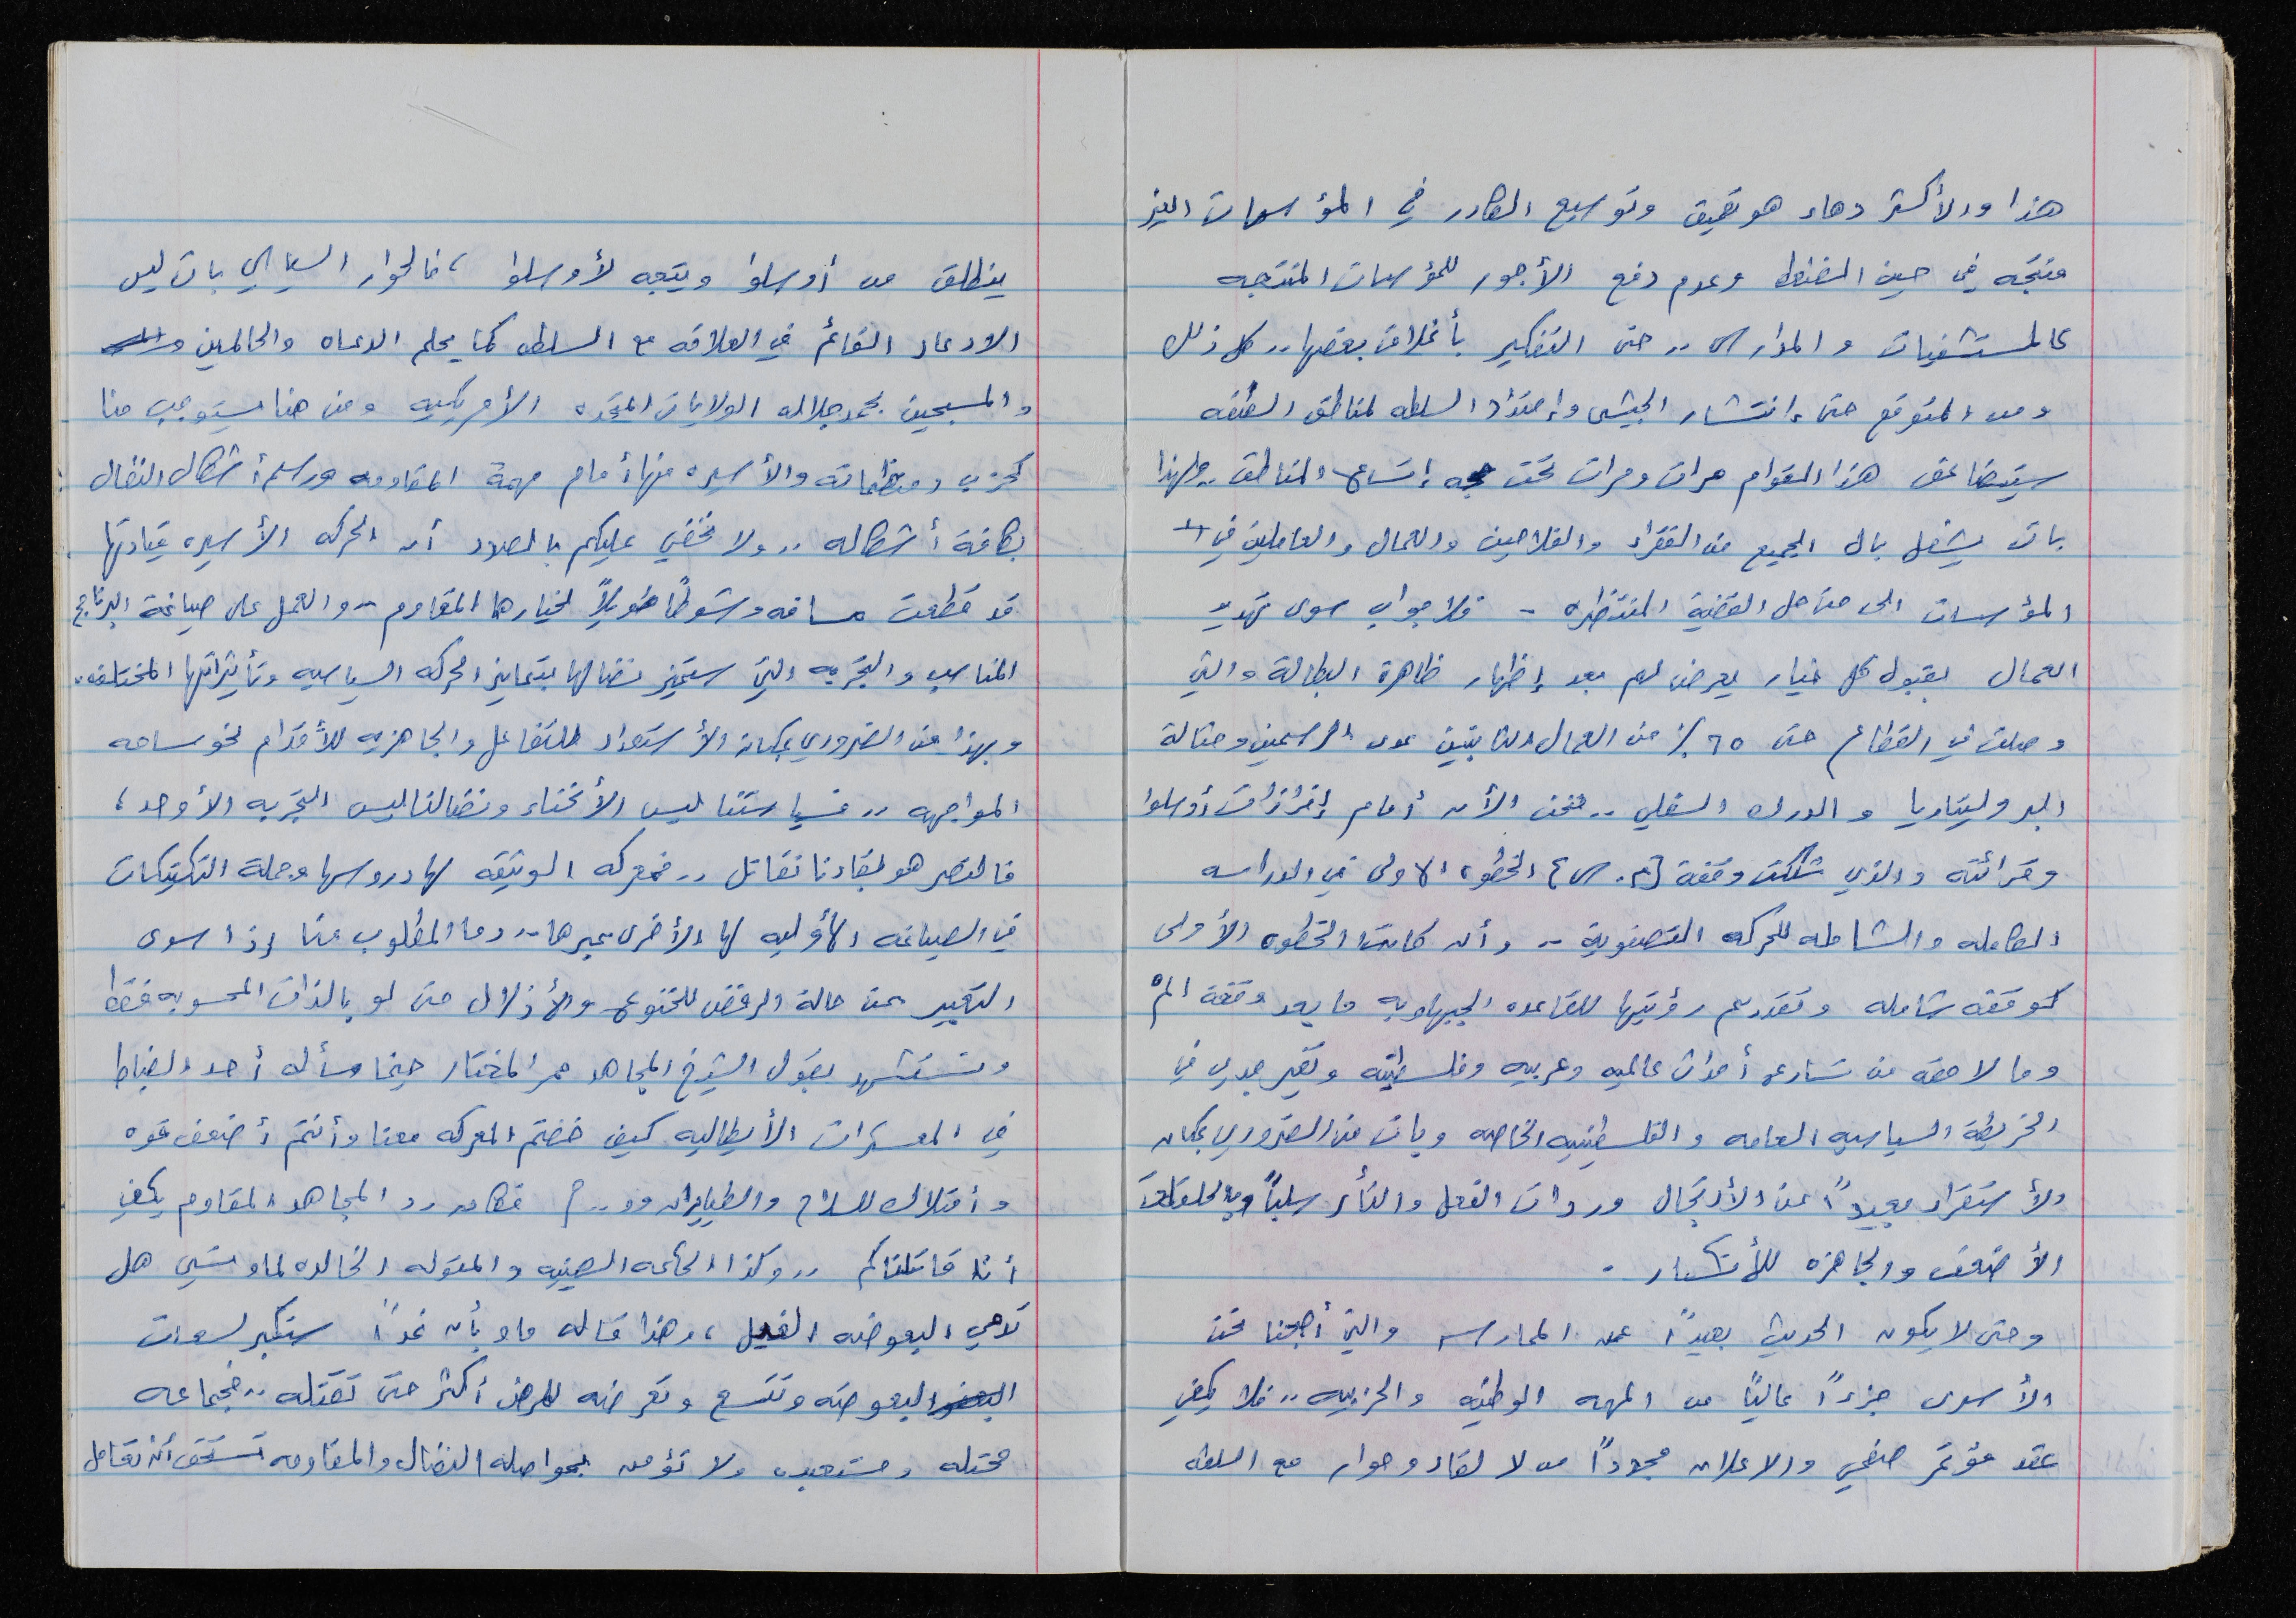 هذا والأكثر دهاء هو تعميق وتوسيع الكادر في المؤسسات الغير
منتجه في حين الضغط وعدم دفع الأجور للمؤسسات المنتجه
كالمستشفيات والمدارس .. حتى التفكير بأغلاق بعضها .. كل ذلك
ومن المتوقع حتى إنتشار الجيش وإمتداد السلطه لمناطق الضفه
سيتضاعف هذا القوام مرات ومرات تحت إتساع المناطق .. ولهذا
بات يشغل بال الجميع من الفقراء والفلاحين والعمال والعاملين في
المؤسسات الى متى حل القضية المنتظره - فلا جواب سوى تهديد
العمال بقبول كل خيار يعرض لهم بعد إظهار ظاهرة البطالة والتي
وصلت في القطاع حتى ٦٥٪ من العمال الثابتين عدى الموسمين وحثالة
البروليتاريا والدرك السفلي .. فنحن الأن أمام إفرازات أوسلوا
وقرائته والذي شكلت وقفة [م.س] الخطوه الاولى في الدراسه
الكامله والشامله للحركه التصفوية .. وأن كانت الخطوه الأولى
كوقفه شامله وتقديم رؤيتها للقاعده الجبهاويه ما بعد وقفة الم
وما لاحقه من تسارع أحداث عالميه وعربيه وفلسطينيه وتغير جدري في
الخريطه السياسيه العامه والفلسطينيه الخاصه وبات من الضروري بمكان
الأستقراء بعيداً عن الأرتجال وردات الفعل والتأثر سلباً وبالحلقات
الأضعف والجاهزه للأنكسار .
وحتى لا يكون الحديث بعيداً عن الممارسه والتي أصبحنا نحن
الأسرى جزءاً عالياً من المهمه الوطنيه والحزبيه .. فلا يكفي
عقد مؤتمر صحفي والاعلان مجدداً من لا لقاء وحوار مع السلطه
ينطلق من أوسلوا ويتجه لأوسلوا ، فالحوار السياسي بات ليس
الادعاء القائم في العلاقه مع السلطه كما يحلم الدعاه والحالمين
والمسبحين بحمد جلاله الولايات المتحده الأمريكيه ومن هنا يستوجب منا
كحزب ومنظماته والأسيره منها أمام مهمة المقاومه ورسم أشكال النضال
بكافة أشكاله .. ولا نخفي عليكم بالصدد أن الحركه الأسيره قيادتها
قد قطعت مسافه وشوطاً طويلاً لخيارها المقاوم .. والعمل على صياغة البرنامج
المناسب والتجربه التي ستميز نضالها بتمايز الحركه السياسيه وتأثيراتها المختلفه.
وبهذا من الضروري بمكان الأستعداد للتفاعل والجاهزيه للأقدام نحو ساحه
المواجهه .. فسياستنا ليس الأنحناء ونضالنا ليس التجربه الأوحد ،
فالنصر هو لبقاءنا نقاتل .. فمعركه الوثيقه لها دروسها وجملة التكتيكات
في الصياغه الأوليه لها الأخرى عبرها .. وما المطلوب منا إذا سوى
التعبير عن حالة الرفض للخنوع والأذلال حتى لو بالذات المحسوبه فقط
ونستشهد بقول الشيخ المجاهد عمر المختار حينما سأله أحد الضباط
في المعسكرات الأيطاليه كيف خضتم المعركه معنا وأنتم أضعف قوه
وأمتلاك للسلاح والطيايران وو .. ؟ فكان رد المجاهد المقاوم يكفي
أننا قاتلناكم .. وكذا الحكمه الصينيه والمقوله الخالده لماوتسي هل
تدمي البعوضه الفيل ، وهذا قاله ماو بأن غداً ستكبر لسعات
البعوضه وتتسع وتعرضه للمرض أكثر حتى تقتله .. فجماعه
محتله ومستعبده ولا تؤمن بمواصله النضال والمقاومه تستحق أن تعامل